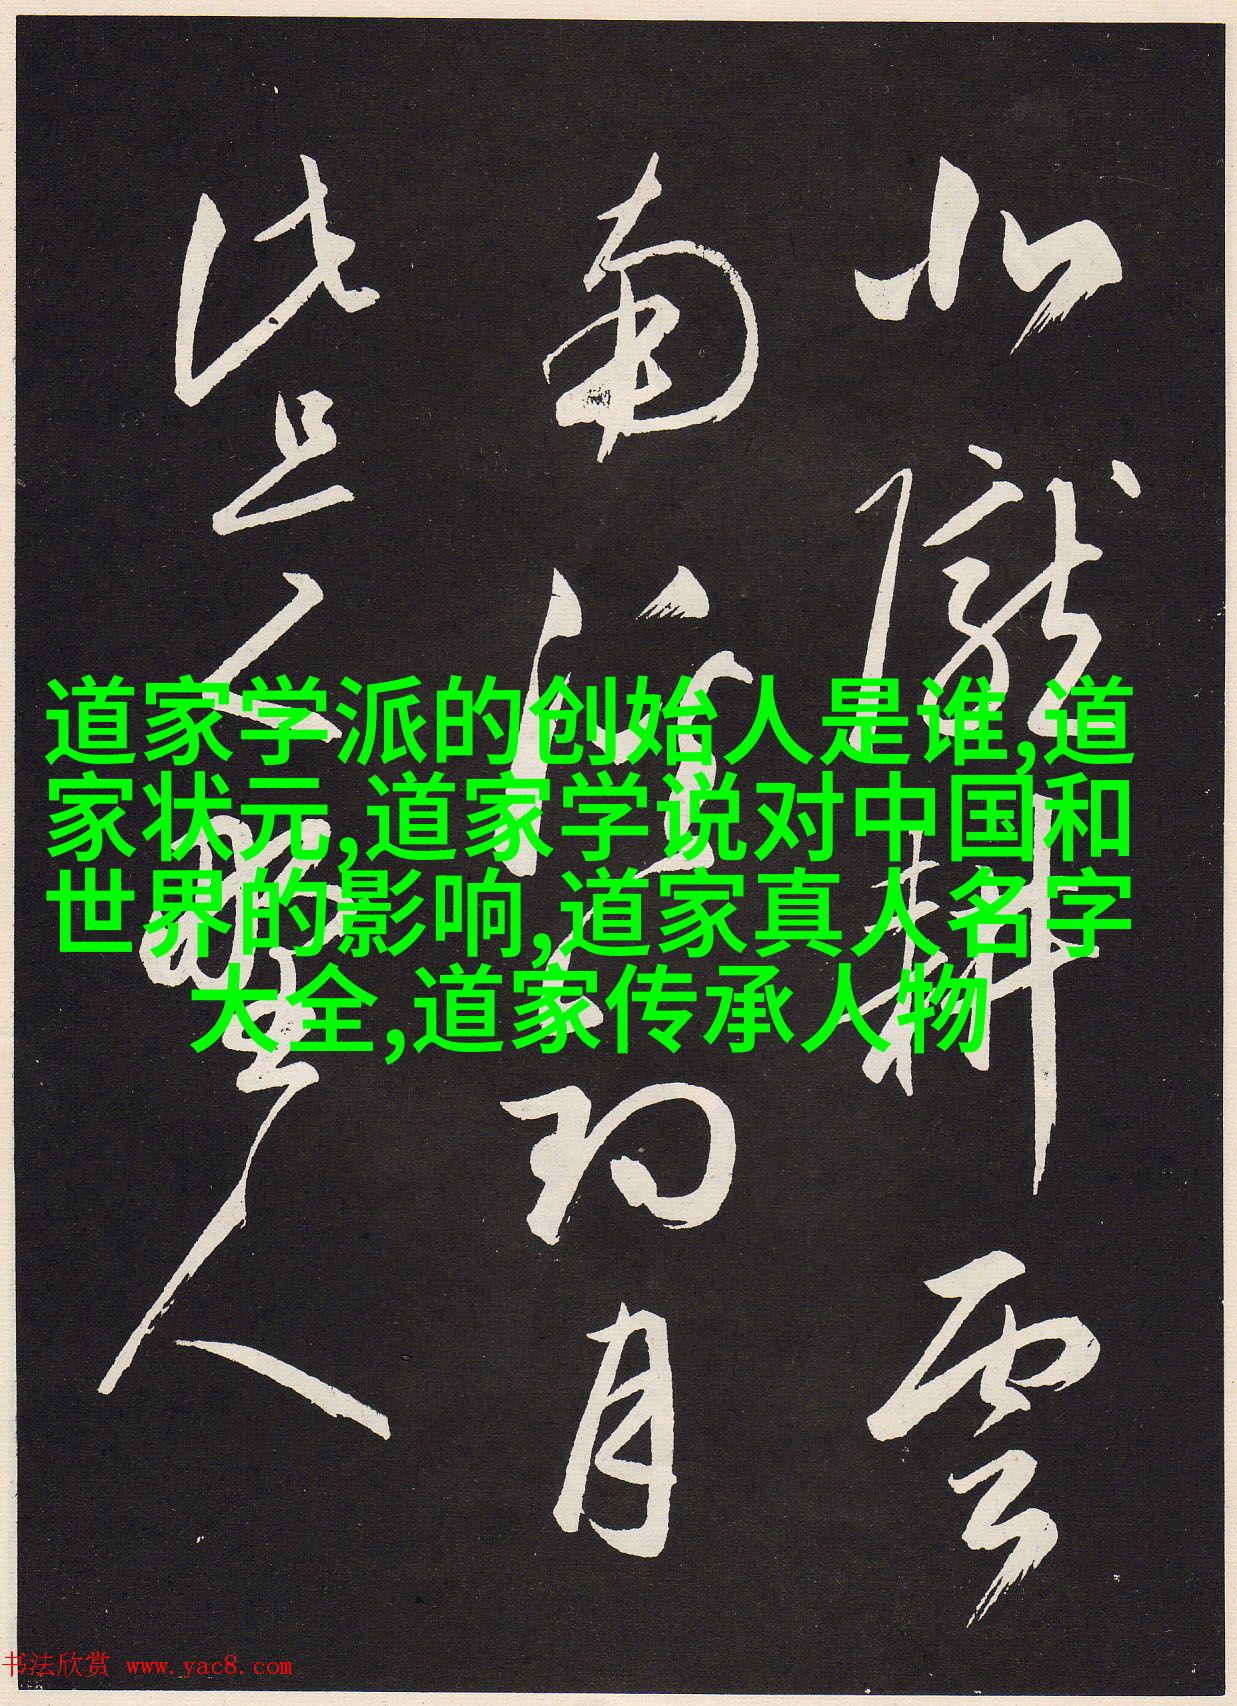 北隴耕雲
南溪釣月
此是野人
道家学派的创始人是谁,道
家状元,道家学说对中国和
世界的影响,道家真人名字
大全,道家传承人物
书法欣赏 www.yac8.com